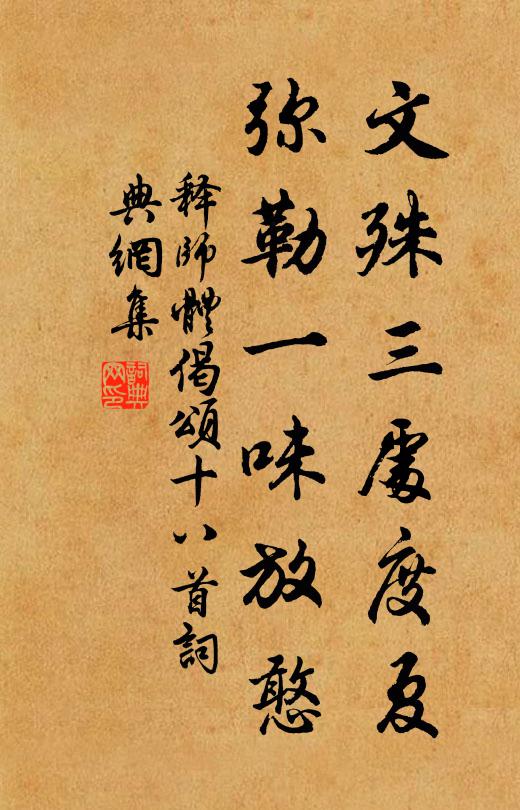 文殊三處度夏
弥勒一味放憨
释師體偈頌十八首詞
典網集
詞典
网印